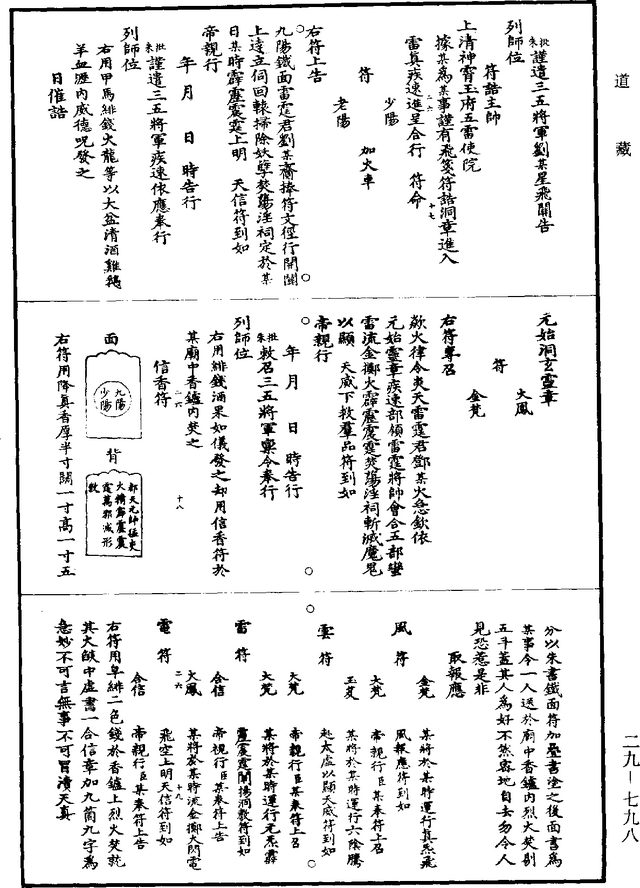 道藏
批朱 謹遣三五將軍劉某星飛關告
列師位
符誥主師
上清神霄玉府五雷使院
據某為某事謹有飛箋符誥洞章進入
雷真疾速進呈合行 符命
二六 十七
少陽
符 加火車
老陽
右符上告
九陽鐵面雷霆君劉某齋捧符文徑行開關
上達立伺回轅掃除妖孽焚蕩淫祠定於某
日某時霹靂震霆上明 天信符到如
帝親行
年 月 日 時告行
批朱 謹遣三五將軍疾速依應奉行
列師位
右用甲馬緋錢火龍等以大盆清酒雞鵝
羊血瀝內威德呪發之
日催誥
元始洞玄靈章
火鳳
符
金梵
右符專召
歘火律令炎天雷霆君鄧某火急欽依
元始靈章疾速部領雷霆將帥會合五部蠻
雷流金擲火霹靂震霆焚蕩淫祠斬滅魔鬼
以顯 天威下救羣品符到如
帝親行
年 月 日 時告行
批朱 敕召三五將軍稟令奉行
列師位
右用緋錢酒果如儀發之却用信香符於
某廟中香鑪內焚之
二六 十八
信香符
面
九陽
少陽
背
都天元帥猛吏
火精霹靂震
霆萬邪滅形
敕
右符用降真香厚半寸闊一寸高一寸五
分以朱書鐵面符加疊書塗之後面書為
某事令一人送於廟中香鑪內烈火焚剔
五斗蓋其人為好不然密地自去勿令人
見恐惹是非
取報應
金梵 某將於某時運行真炁飛
風報應符到如
風符
大梵 帝親行臣某奉符上召
玉炁 某將於某時運行六陰騰
起太虛以顯天威符到如
雲符
大梵 帝親行臣某奉符上召
大梵 某將於某時運行元炁霹
靂震霆開揚洞敕符到如
雷符
合信 帝親行臣某奉符上告
火鳳 某將於某時流金擲火閃電
二六 十九
飛空上明天信符到如
電符
合信 帝親行臣某奉符上告
右符用皁緋二色錢於香鑪上烈火焚就
其火燄中虛書一合信章加九箇九字為
急妙不可言無事不可冒瀆天真
二九—七九八